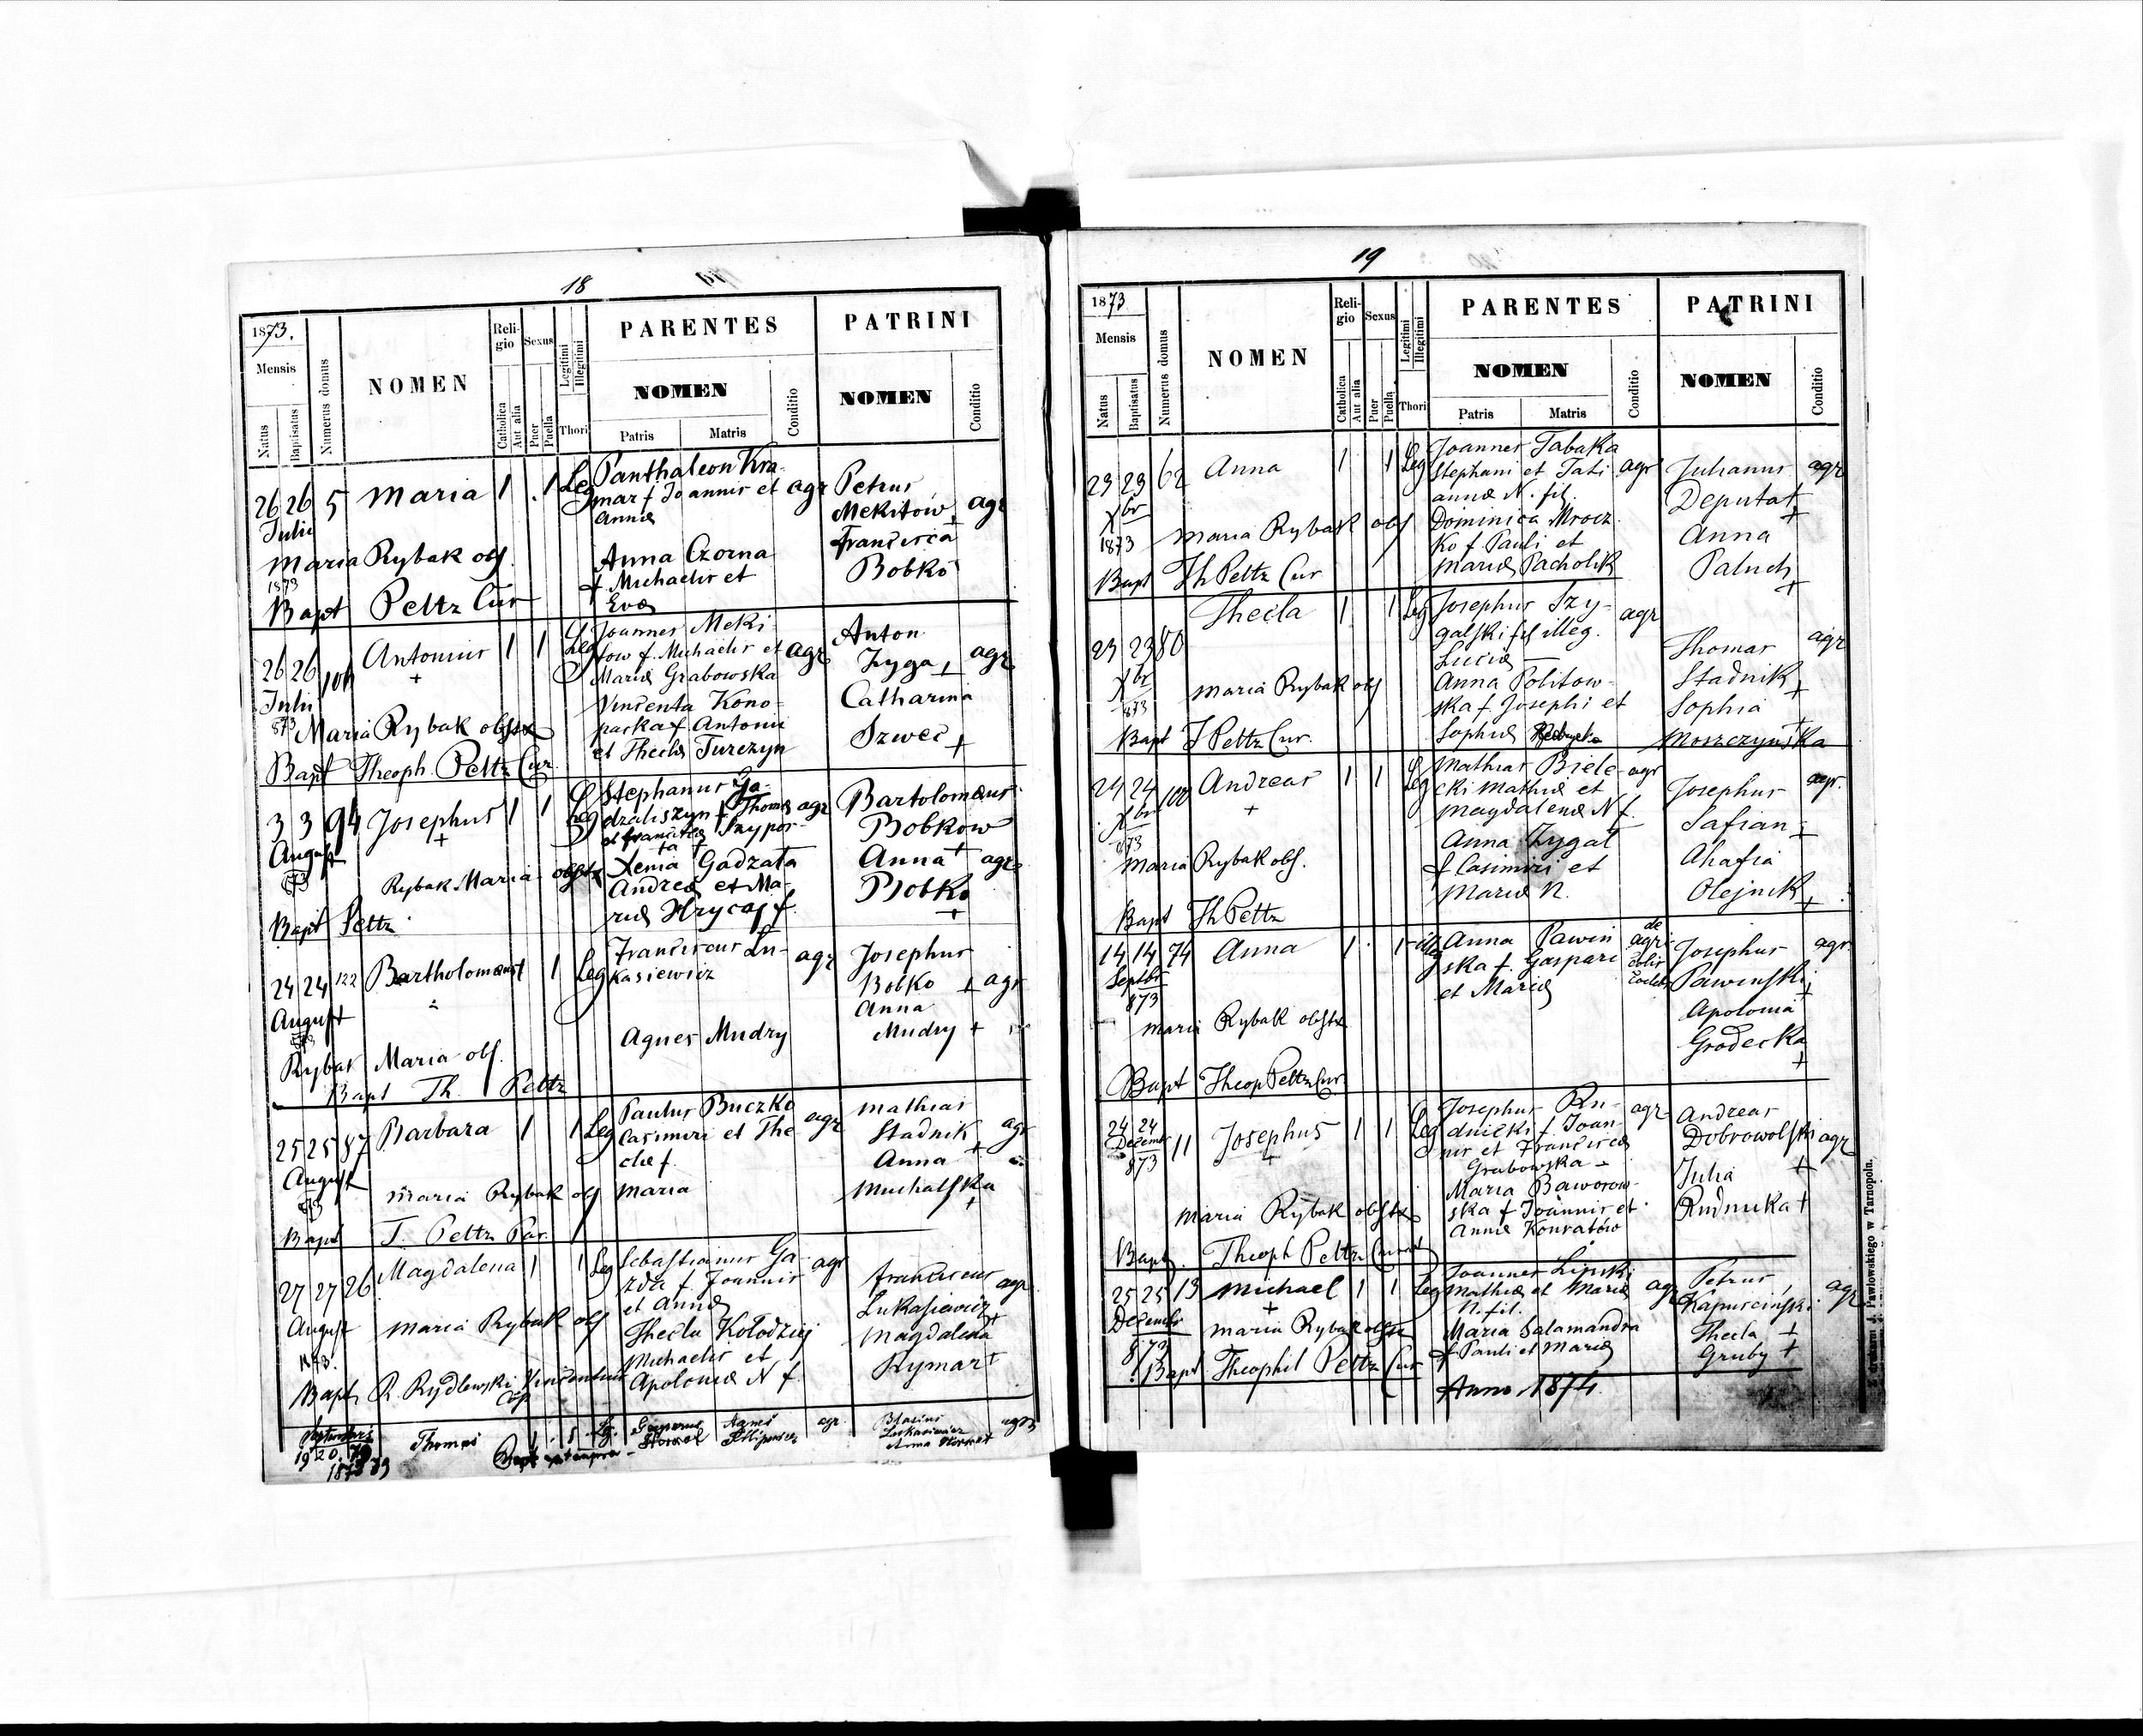 18
1873.
Mensis
Natus
Baptisatus
Numerus domus
NOMEN
Religio
Catholica
Aut alia
Sexus
Puer
Puella
Legitimi
Illegitimi
Thori
PARENTES
NOMEN
Patris
Matris
Conditio
PATRINI
NOMEN
Conditio
26 26 5 Maria 1 1 Leg
Julii
Maria Rybak obs.
1873
Bapt Peltz Cur
Panthaleon Kra-
mar f Joannis et agr
Annæ
Anna Czorna
f Michaelis et
Evæ
Petrus
Mekitow agr
Francisca
Bobko
26 26 Antonius 1 1 Leg
+
Julii
873 Maria Rybak obstx
Bapt Theoph. Peltz Cur
Joannes Meki-
tow f. Michaelis et agr
Mariæ Grabowska
Vincenta Kono-
packa f. Antonii
et Theclæ Turczyn
Anton
Zyga + agr
Catharina
Szwec +
3 3 94 Josephus 1 1 Leg
+
August
873
Rybak Maria obstx
Bapt Peltz
Stephanus Ga-
dzaliszyn f Thomæ agr
Xenia Gadzata
Andreæ et Ma-
riæ Hrycaj f.
Bartolomæus
Bobkow
Anna + agr
Bobko
+
24 24 122 Bartholomæus 1 Leg
August
873
Rybak Maria obs.
Bapt Th. Peltz
Franciscus Lu- agr
kasiewicz
Agnes Mudry
Josephus
Bobko + agr
Anna
Mudry +
25 25 87 Barbara 1 1 Leg
August
873
Maria Rybak obs
Bapt T. Peltz Par.
Paulus Buczko agr
Casimiri et The-
clæ f.
Maria
Mathias
Stadnik + agr
Anna
Michalska
+
27 27 26 Magdalena 1 1 Leg
August
1873.
Maria Rybak obs
Bapt R. Rydlewski Vincentius
Cop
Sebastianus Ga- agr
zda f. Joannis
et Annæ
Thecla Kołodziej
Michaelis et
Apoloniæ N f.
Franciscus agr
Lukasiewicz
+
Magdalena
Rymar +
Septembris
19 20 79
1873
Thomas 1 1 Leg.
Bapt ut supra
Gasparus
Agnes
agr.
Blasius
Lukasiewicz
Anna
agr
19
1873
Mensis
Natus
Baptisatus
Numerus domus
NOMEN
Religio
Catholica
Aut alia
Sexus
Puer
Puella
Legitimi
Illegitimi
Thori
PARENTES
NOMEN
Patris
Matris
Conditio
PATRINI
NOMEN
Conditio
23 23 62 Anna 1 1 Leg
Xbr
1873 Maria Rybak obs
Bapt Th Peltz Cur
Joannes Tabaka
Stephani et Tati- agr
annæ N. fil.
Dominica Mrocz-
ko f. Pauli et
Mariæ Pacholik
Julianus agr
Deputat
+
Anna
Paluch
+
23 23 80 Thecla 1 1 Leg
Xbr
873 Maria Rybak obs
Bapt T Peltz Cur.
Josephus Szy- agr
galski fil illeg.
Luciæ —
Anna Politow-
ska f. Josephi et
Sophiæ
Thomas agr
Stadnik
+
Sophia
Moszczynska
24 24 100 Andreas 1 1 Leg
+
Xbr
873
Maria Rybak obs.
Bapt Th Peltz
Mathias Biele- agr
cki Mathiæ et
Magdalenæ N f.
Anna Zygal
f Casimiri et
Mariæ N.
Josephus agr.
Safian +
Ahafia
Olejnik +
14 14 74 Anna 1 1 illg
Septbr
873
Maria Rybak obstx
Bapt Theop Peltz Cur
Anna Pawin- de
ska f. Gaspari agri-
et Mariæ
Josephus agr
Pawinski
+
Apolonia
Grodecka
+
24 24 11 Josephus 1 1 Leg
+
Decembr
873
Maria Rybak obstx
Bapt. Theoph Peltz Curat
Josephus Ru- agr
dnicki f Joan-
nis et Franciscæ
Grabowska —
Maria Baworow-
ska f Joannis et
Annæ Konratów
Andreas
Dobrowolski agr
+
Julia
Rudnicka +
25 25 13 Michael 1 1 Leg
+
Decembr
873
Maria Rybak obstx
Bapt Theophil Peltz Cur
Joannes Lipski
Mathiæ et Mariæ agr
N. fil.
Maria Salamandra
f Pauli et Mariæ
Petrus
Kapuscinski agr
Thecla +
Gruby +
Anno 1874.
Z drukarni J. Pawłowskiego w Tarnopolu.